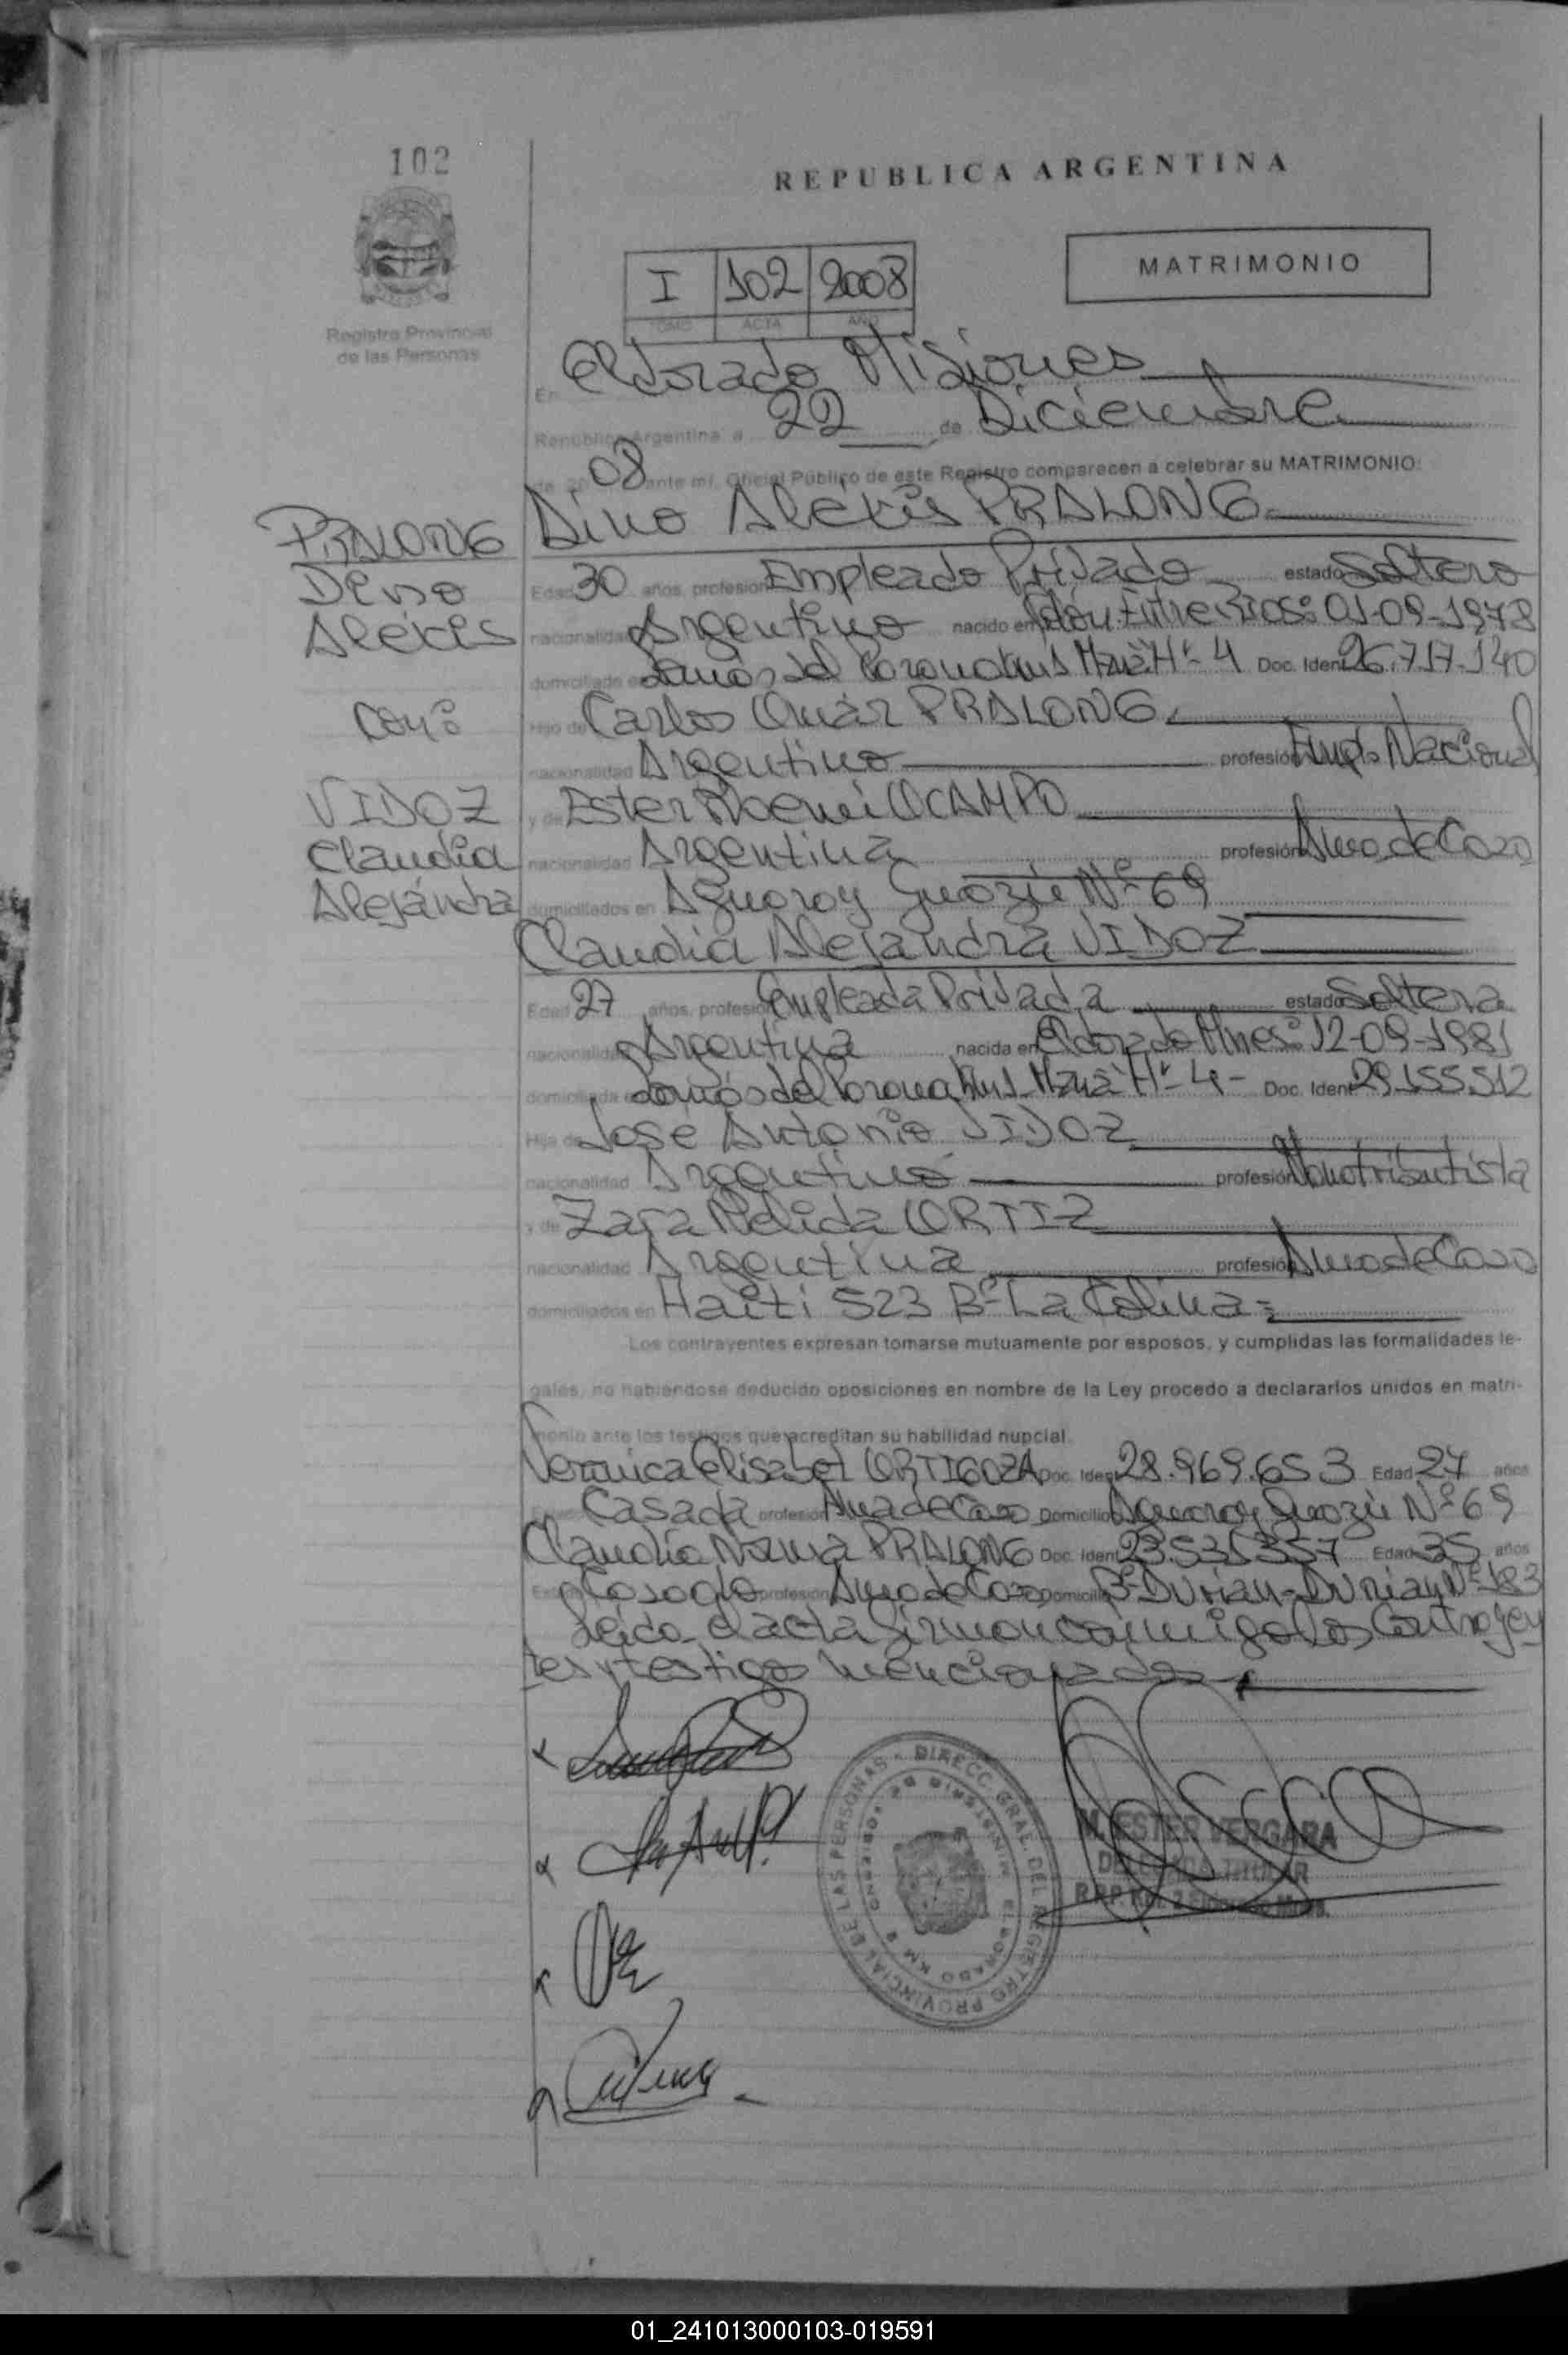 102
REPUBLICA ARGENTINA
MATRIMONIO
I 102 2008
TOMO ACTA AÑO
Registro Provincial
de las Personas
En Eldorado Misiones
República Argentina a 22 de Diciembre
de 20 08 ante mí, Oficial Público de este Registro comparecen a celebrar su MATRIMONIO:
PRALONG
Dino
Alexis
Con:
VIDOZ
Claudia
Alejandra
Dino Alexis PRALONG
Edad 30 años, profesión Empleado Privado estado Soltero
nacionalidad Argentino nacido en Colón Entre Rios: 01-09-1978
domiciliado en Manz H- 4 Doc. Ident 26.717.140
Hijo de Carlos Omar PRALONG
nacionalidad Argentino profesión Empl. Nacional
y de Ester Noemi OCAMPO
nacionalidad Argentina profesión Ama de Casa
domiciliados en Aguaray Guazú Nº 69
Claudia Alejandra VIDOZ
Edad 27 años, profesión Empleada Privada estado Soltera
nacionalidad Argentina nacida en Eldorado Mnes: 12-09-1981
domiciliada en Manz H- 4- Doc. Ident 29.155.512
Hija de Jose Antonio VIDOZ
nacionalidad Argentino profesión Monotributista
y de Zara Nelida ORTIZ
nacionalidad Argentina profesión Ama de Casa
domiciliados en Haiti 523 Bº La Colina=
Los contrayentes expresan tomarse mutuamente por esposos, y cumplidas las formalidades le-
gales, no habiendose deducido oposiciones en nombre de la Ley procedo a declararlos unidos en matri-
monio ante los testigos que acreditan su habilidad nupcial.
Veronica Elisabet ORTIGOZA Doc. Ident 28.969.653 Edad 27 años
Casada profesión Ama de Casa Domicilio Aguaray Guazú Nº 69
Claudia Norma PRALONG Doc. Ident 23.535357 Edad 35 años
Casada profesión Ama de Casa Domicilio Nº 183
Leida el acta firman conmigo los Contrayen
tes y testigos mencionados
DIRECC. GRAL. DEL REGISTRO PROVINCIAL DE LAS PERSONAS
ELDORADO KM
M. ESTER VERGARA
DELEGADA TITULAR
01_241013000103-019591